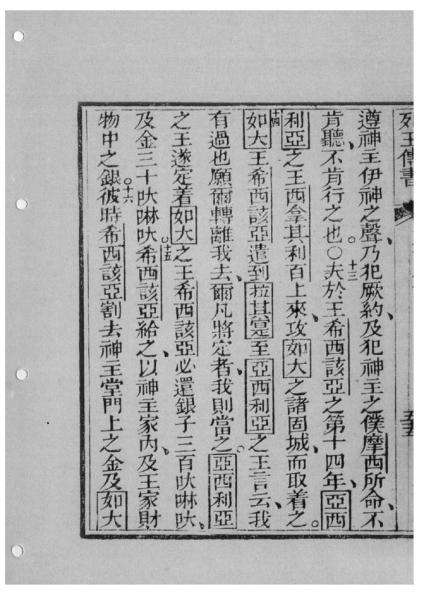 列王傳書
遵神主伊神之聲、乃犯厥約及犯神主之僕摩西所命、不
肯聽、不肯行之也。○十三夫於王希西該亞之第十四年、亞西
利亞之王西拿其利百上來攻如大之諸固城、而取着之。
十四如大王希西該亞遣到拉其寔至亞西利亞之王言云、我
有過也願爾轉離我去、爾凡將定者、我則當之。亞西利亞
之王遂定着如大之王希西該亞必還銀子三百呔啉呔、
及金三十呔啉呔。十五希西該亞給之、以神主家內、及王家財
物中之銀。十六彼時希西該亞割去神主堂門上之金及如大